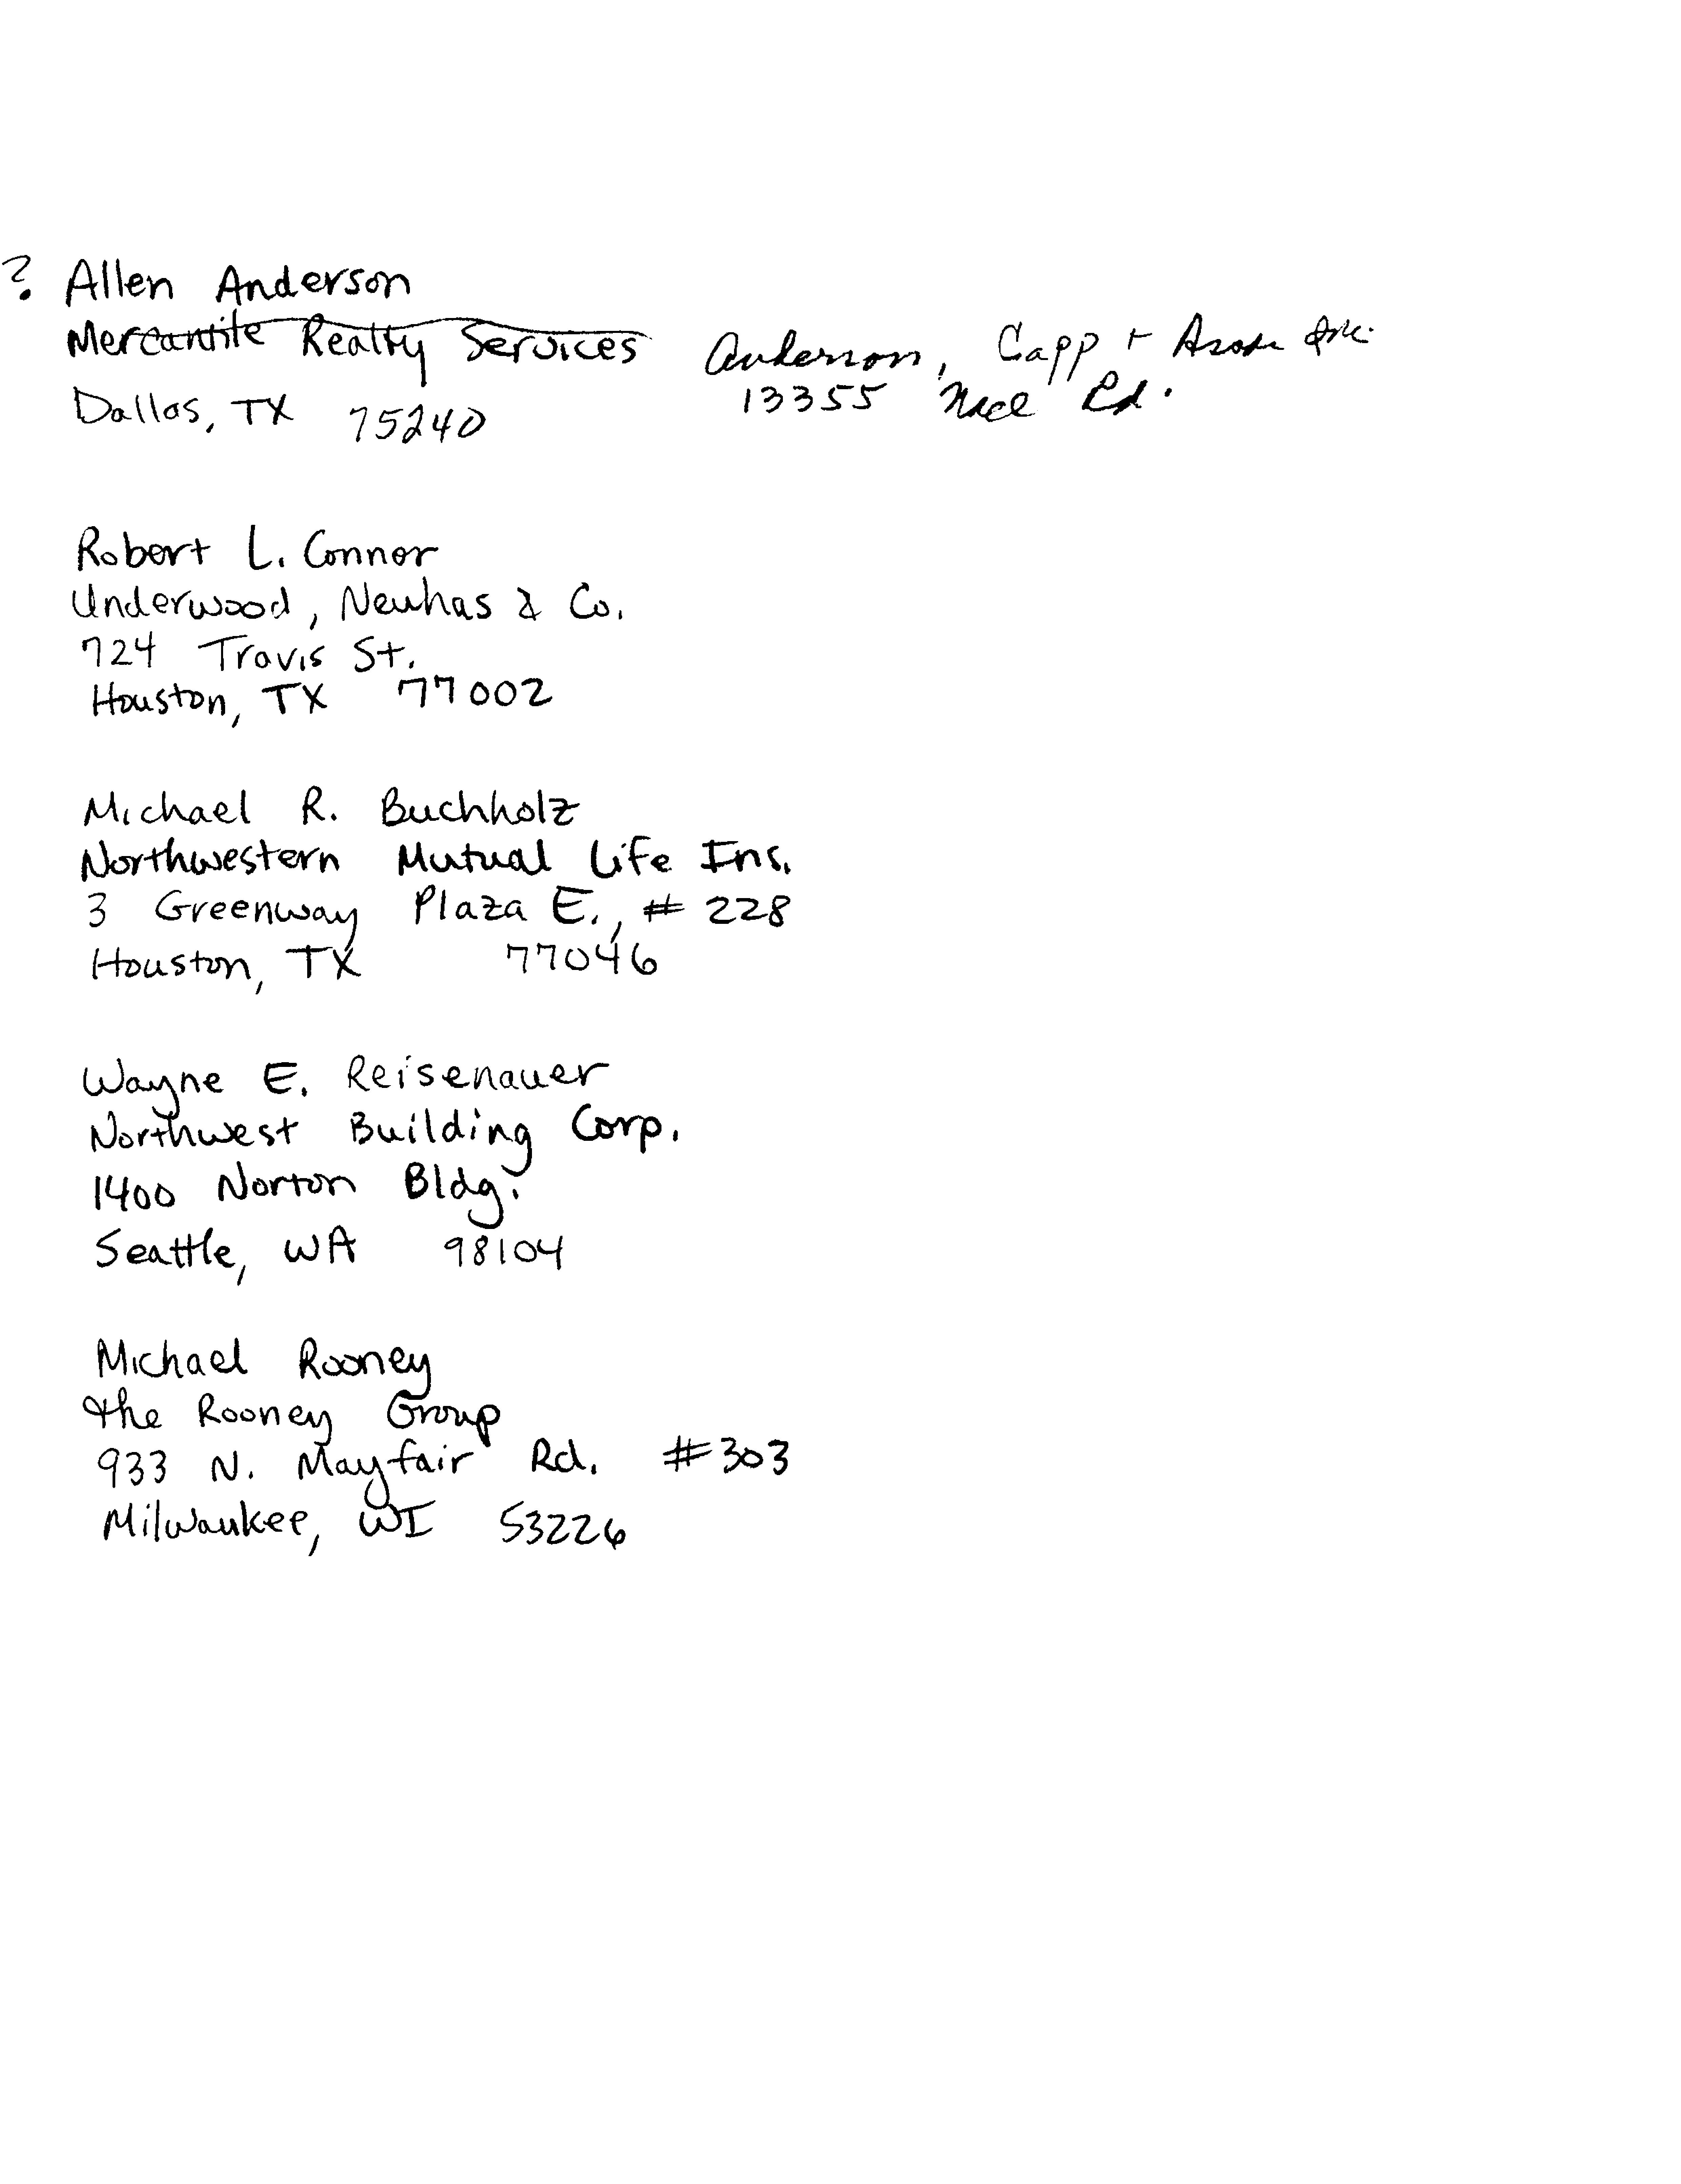 ? Allen Anderson
Mercantile Realty Services Anderson, Capp + Assoc Inc.
Dallas, TX 75240 13355 Noel Rd.
Robert L. Connor
Underwood, Neuhas & Co.
724 Travis St.
Houston, TX 77002
Michael R. Buchholz
Northwestern Mutual Life Ins.
3 Greenway Plaza E., # 228
Houston, TX 77046
Wayne E. Reisenauer
Northwest Building Corp.
1400 Norton Bldg.
Seattle, WA 98104
Michael Rooney
The Rooney Group
933 N. Mayfair Rd. #303
Milwaukee, WI 53226